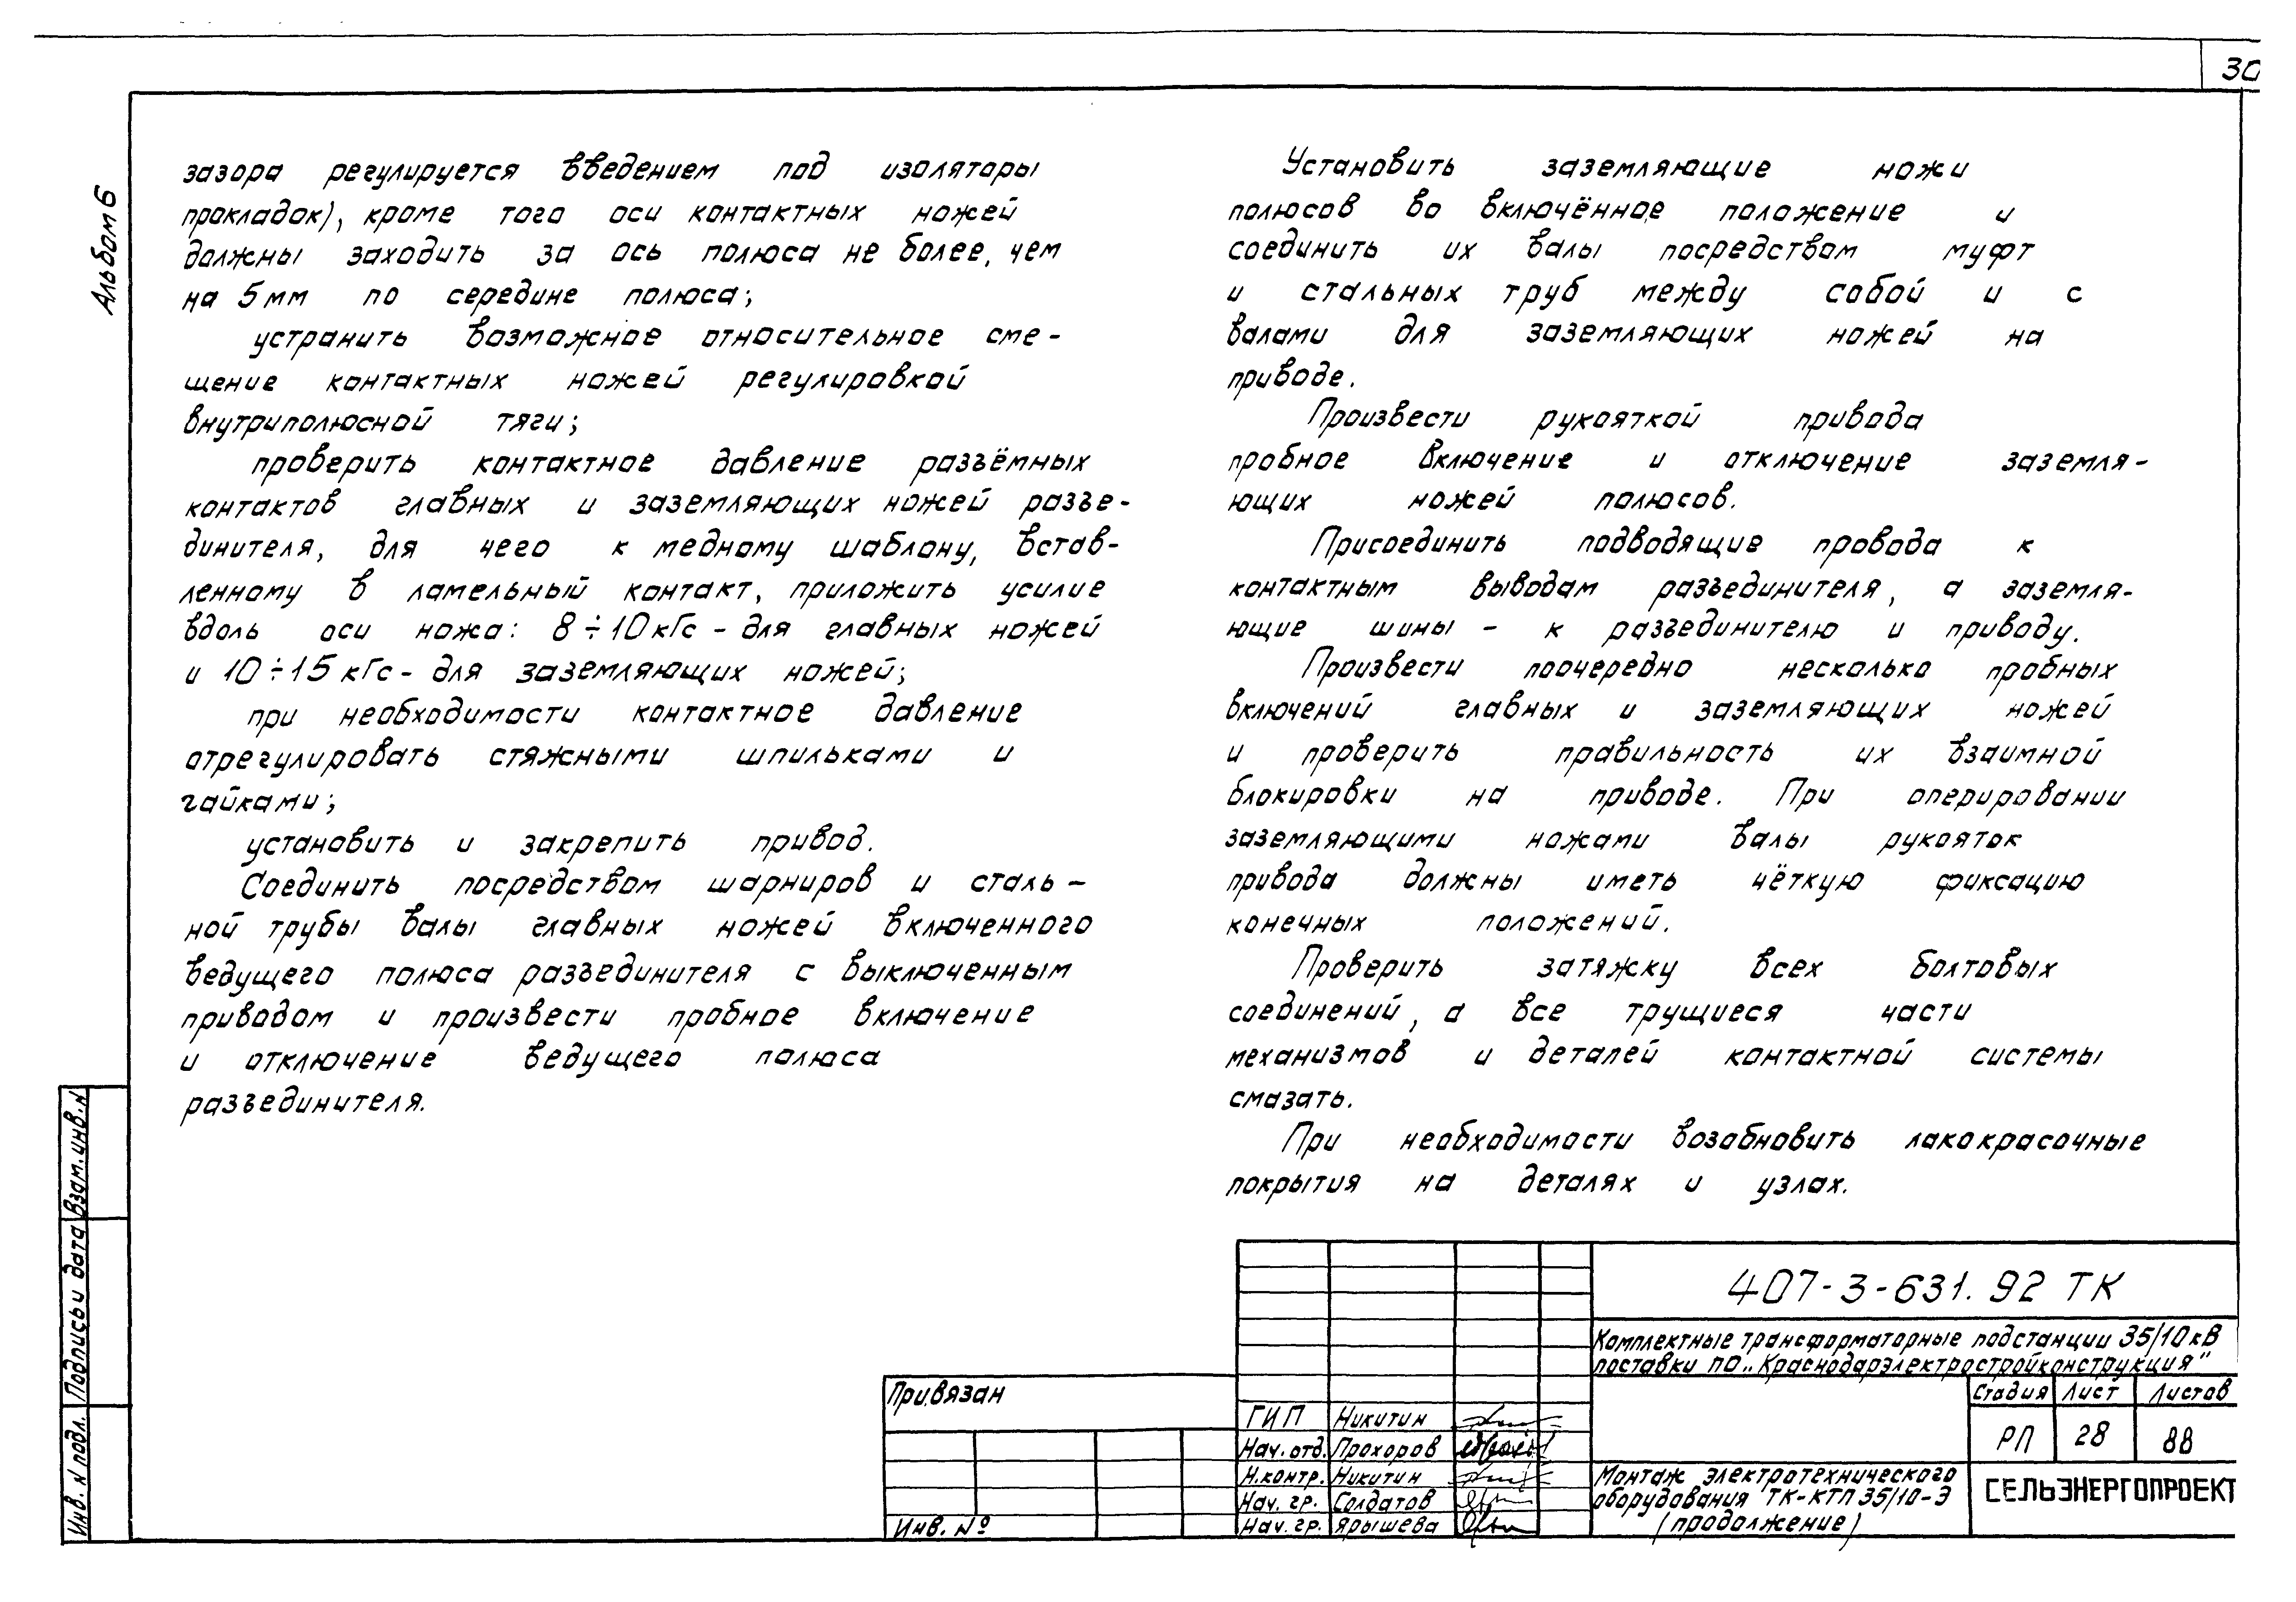 30
Альбом 6
зазора регулируется введением под изоляторы
прокладок), кроме того оси контактных ножей
должны заходить за ось полюса не более, чем
на 5 мм по середине полюса;
устранить возможное относительное сме-
щение контактных ножей регулировкой
внутриполюсной тяги;
проверить контактное давление разъёмных
контактов главных и заземляющих ножей разъе-
динителя, для чего к медному шаблону, встав-
ленному в ламельный контакт, приложить усилие
вдоль оси ножа: 8÷10 кГс - для главных ножей
и 10÷15 кГс - для заземляющих ножей;
при необходимости контактное давление
отрегулировать стяжными шпильками и
гайками;
установить и закрепить привод.
Соединить посредством шарниров и сталь-
ной трубы валы главных ножей включенного
ведущего полюса разъединителя с выключенным
приводом и произвести пробное включение
и отключение ведущего полюса
разъединителя.
Установить заземляющие ножи
полюсов во включённое положение и
соединить их валы посредством муфт
и стальных труб между собой и с
валами для заземляющих ножей на
приводе.
Произвести рукояткой привода
пробное включение и отключение заземля-
ющих ножей полюсов.
Присоединить подводящие провода к
контактным выводам разъединителя, а заземля-
ющие шины - к разъединителю и приводу.
Произвести поочередно несколько пробных
включений главных и заземляющих ножей
и проверить правильность их взаимной
блокировки на приводе. При оперировании
заземляющими ножами валы рукояток
привода должны иметь чёткую фиксацию
конечных положений.
Проверить затяжку всех болтовых
соединений, а все трущиеся части
механизмов и деталей контактной системы
смазать.
При необходимости возобновить лакокрасочные
покрытия на деталях и узлах.
Взам. инв. N
Подпись и дата
Инв. N подл.
Привязан
Инв. №
ГИП Никитин
Нач. отд. Прохоров
Н.контр. Никитин
Нач. гр. Солдатов
Нач. гр. Ярышева
407-3-631.92 ТК
Комплектные трансформаторные подстанции 35/10 кВ
поставки ПО „Краснодарэлектростройконструкция"
Стадия Лист Листов
РП 28 88
Монтаж электротехнического
оборудования ТК-КТП 35/10-Э
(продолжение)
СЕЛЬЭНЕРГОПРОЕКТ